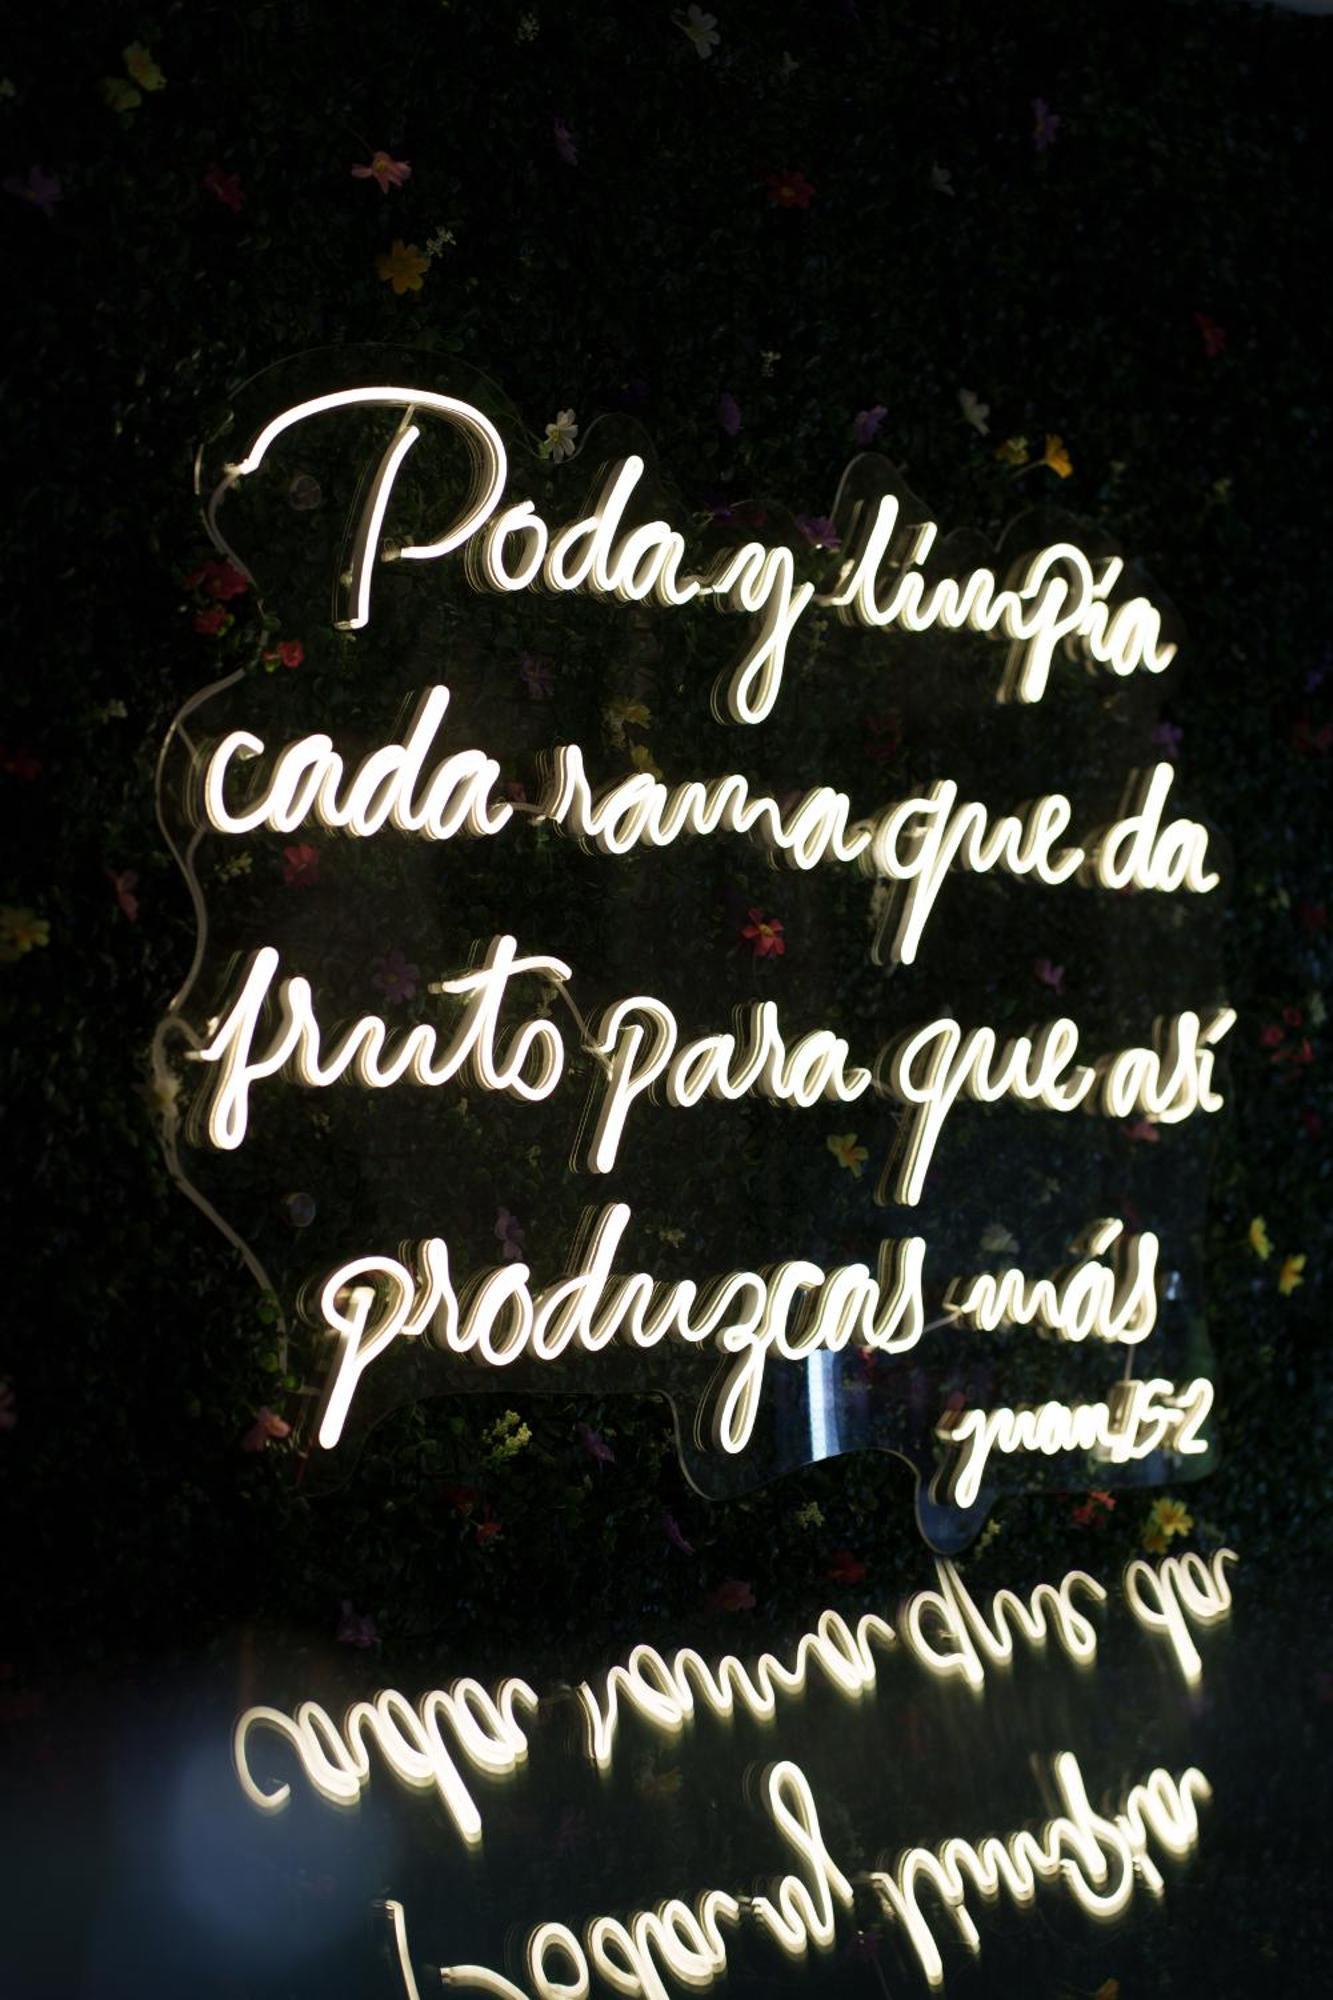 Poda y limpia
cada rama que da
fruto para que así
produzcas más
juan 15-2